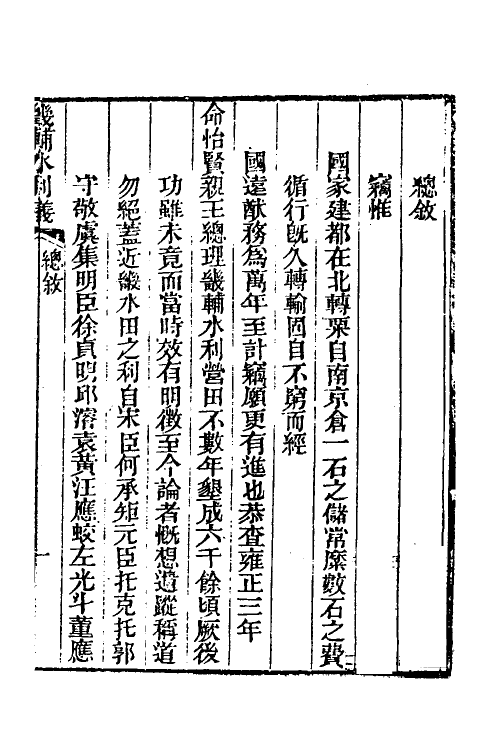 總敘
竊惟
國家建都在北轉粟自南京倉一石之儲常糜數石之費
循行旣久轉輸固自不窮而經
國遠猷務爲萬年至計竊願更有進也恭查雍正三年
命怡賢親王總理畿輔水利營田不數年墾成六千餘頃厥後
功雖未竟而當時效有明徵至今論者慨想遺蹤稱道
勿絕蓋近畿水田之利自宋臣何承矩元臣托克托郭
守敬虞集明臣徐貞明邱濬袁黃汪應蛟左光斗董應
畿輔水利議
總敘
一